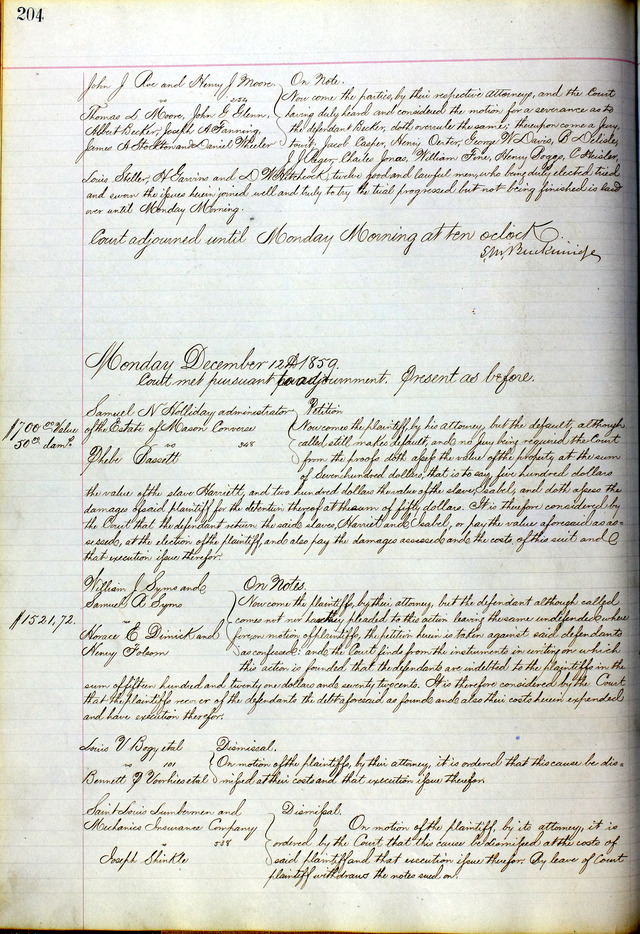 204
John J Roe and Henry J Moore } On Note.
vs 254
Thomas L Moore, John G Glenn,
Albert Becker, Joseph A Fanning,
James A Stockton and Daniel Wheeler
Now come the parties, by their respective Attorneys, and the Court
having duly heard and considered the motion for a severance as to
the defendant Becker, doth overrule the same; thereupon come a Jury,
towit, Jacob Casper, Henry Oerter, George W Davis, B Delisle,
J J Riger, Charles Jonas, William Fine, Henry Boggs, C Heisler,
Louis Steller, H Garvins and D W Hitchcock, twelve good and lawful men, who being duly elected tried
and sworn the issues herein joined well and truly to try the trial progressed but not being finished is laid
over until Monday Morning.
Court adjourned until Monday Morning at ten oclock.
S. M. Breckinridge
Monday December 12th 1859.
Court met pursuant to adjournment. Present as before.
$700 00 Value
50 00 dam.
Samuel N Holliday administrator
of the Estate of Mason Converse
vs 348
Phebe Bassett
Petition
Now comes the plaintiff, by his attorney, but the default, although
called, still makes default, and no jury being required, the Court
from the proofs doth assess the value of the property at the sum
of seven hundred dollars, that is to say, five hundred dollars
the value of the slave Harriett, and two hundred dollars the value of the slave, Isabel, and doth assess the
damages of said plaintiff for the detention thereof at the sum of fifty dollars. It is therefore considered by
the Court that the defendant return the said slaves, Harriet and Isabel, or pay the value aforesaid as as=
sessed, at the election of the plaintiff, and also pay the damages assessed and the costs, of this suit and
that execution issue therefor.
$1521,72.
William J Syms and
Samuel R Syms
vs
Horace E Dimick and
Henry Folsom
On Notes.
Now come the plaintiffs, by their attorney, but the defendant although called
comes not nor has they pleaded to this action leaving the same undefended; where
fore on motion of plaintiff, the petition herein is taken against said defendants
as confessed; and the Court finds from the instruments in writing on which
this action is founded that the defendants are indebted to the plaintiffs in the
sum of fifteen hundred and twenty one dollars and seventy two cents. It is therefore considered by the Court
that the plaintiffs recover of the defendants the debt aforesaid as found and also their costs herein expended
and have execution therefor.
Louis V Bogy, et al
vs 101
Bennett P Vorhies et al
Dismissal.
On motion of the plaintiffs, by this attorney, it is ordered that this cause be dis=
missed at their costs and that execution issue therefor.
Saint Louis Lumbermen and
Mechanics Insurance Company
vs 538
Joseph Shinkle
Dismissal.
On motion of the plaintiff, by its attorney, it is
ordered by the Court that this cause be dismissed at the costs of
said plaintiff and that execution issue therefor. By leave of Court
plaintiff withdraws the notes sued on.